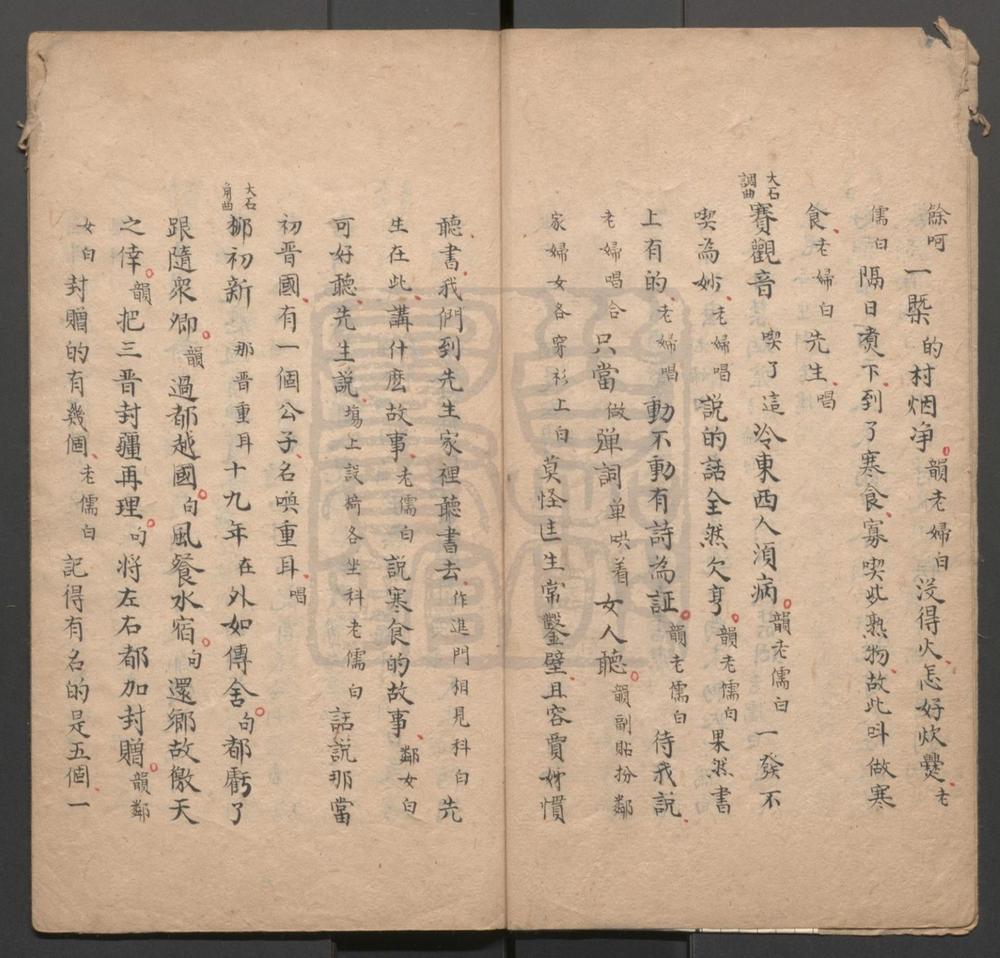 餘呵 一槩的村烟净韻老婦白没得火怎好炊爨老
儒白隔日煑下到了寒食寡喫些熟物故此呌做寒
食老婦白先生唱
大石調曲
賽觀音 喫了這冷東西人須病韻老儒白一發不
喫為妙老婦唱說的話全然欠亨韻老儒白果然書
上有的老婦唱動不動有詩為証韻老儒白待我說
老婦唱合只當做彈詞单哄着女人聽韻副貼扮鄰
家婦女各穿衫上白莫怪匡生常鑿壁且容賈姊慣
聽書我們到先生家裡聽書去作進門相見科白先
生在此講什麽故事老儒白說寒食的故事鄰女白
可好聽先生說塲上設椅各坐科老儒白話說那當
初晋國有一個公子名喚重耳唱
大石角曲
挪初新 那晋重耳十九年在外如傳舍句都虧了
跟隨衆卿韻過都越國句風餐水宿句還鄉故儌天
之倖韻把三晋封疆再理句将左右都加封贈韻鄰
女白封贈的有幾個老儒白記得有名的是五個一